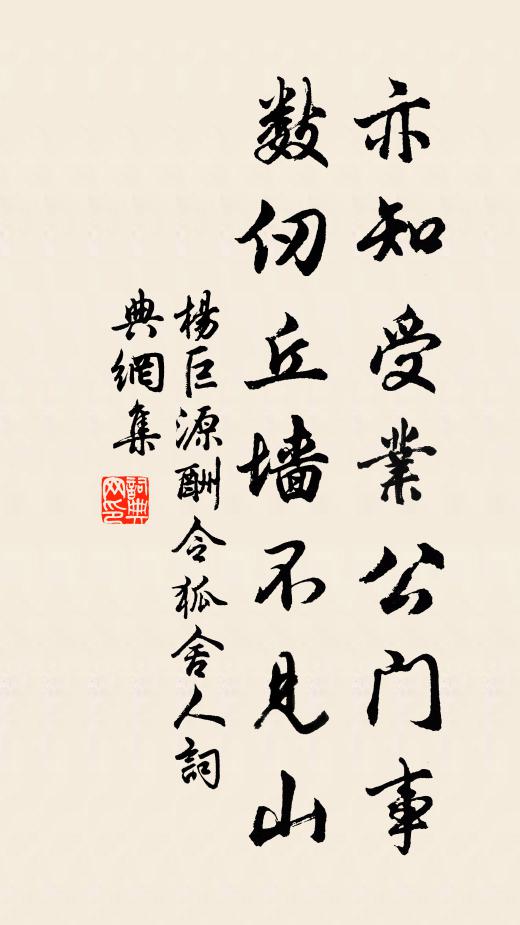 亦知受業公門事
数仞丘墙不見山
楊巨源酬令狐舍人詞
典網集
詞典网印